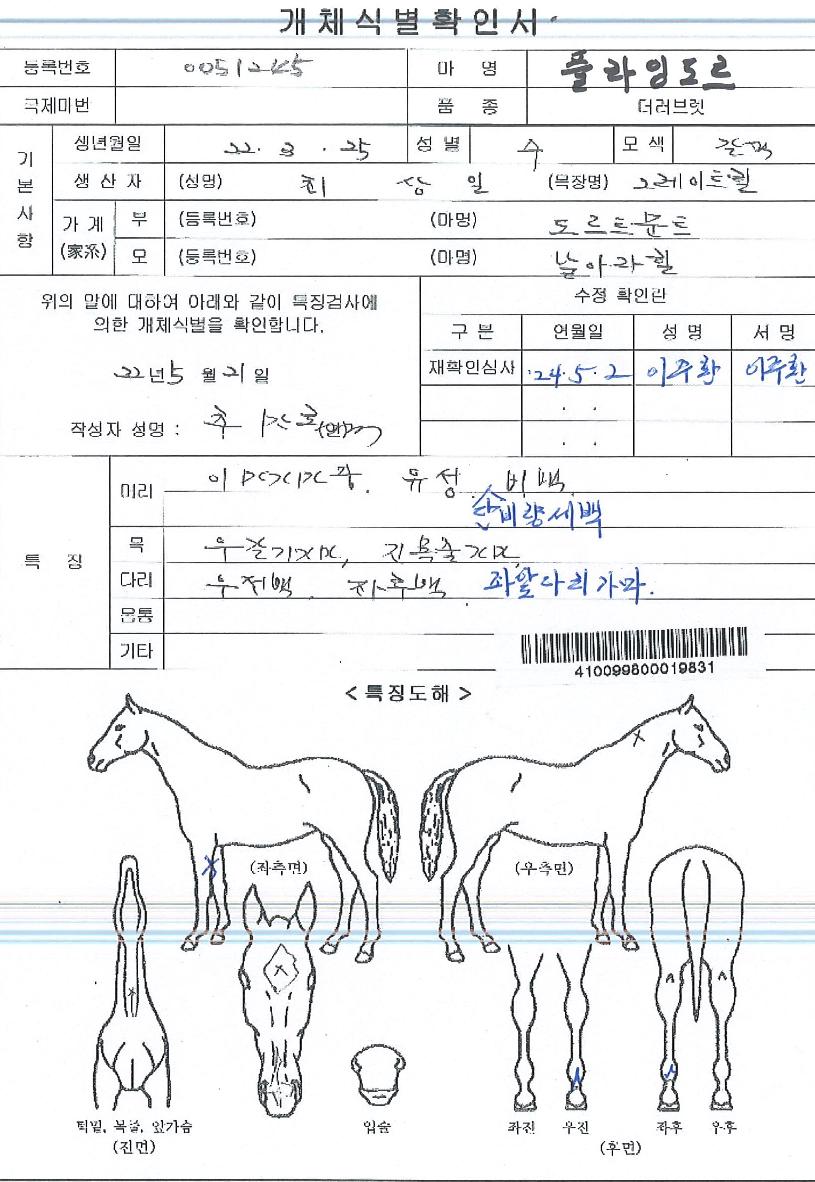 개체식별확인서
등록번호 0051245 마 명 플라잉도르
국제마번 품 종 더러브렛
기본사항
생년월일 22. 3 . 25 성 별 수 모 색 갈색
생 산 자 (성명) 최 상 일 (목장명) 그레이트힐
가 계 (家系) 부 (등록번호) (마명) 도르트문트
모 (등록번호) (마명) 날아라힐
위의 말에 대하여 아래와 같이 특징검사에
의한 개체식별을 확인합니다.
22년 5 월 21 일
작성자 성명 :
수정 확인란
구 분 연월일 성 명 서 명
재확인심사 '24.5.2 이주환 이주환
. .
. .
특 징
머리 유성 비백
단비량세백
목
다리 우전백 좌후백 좌앞다리가마.
몸통
기타
410099800019831
< 특징도해 >
(좌측면) (우측면)
턱밑, 목줄, 앞가슴 입술 좌전 우전 좌후 우후
(전면) (후면)